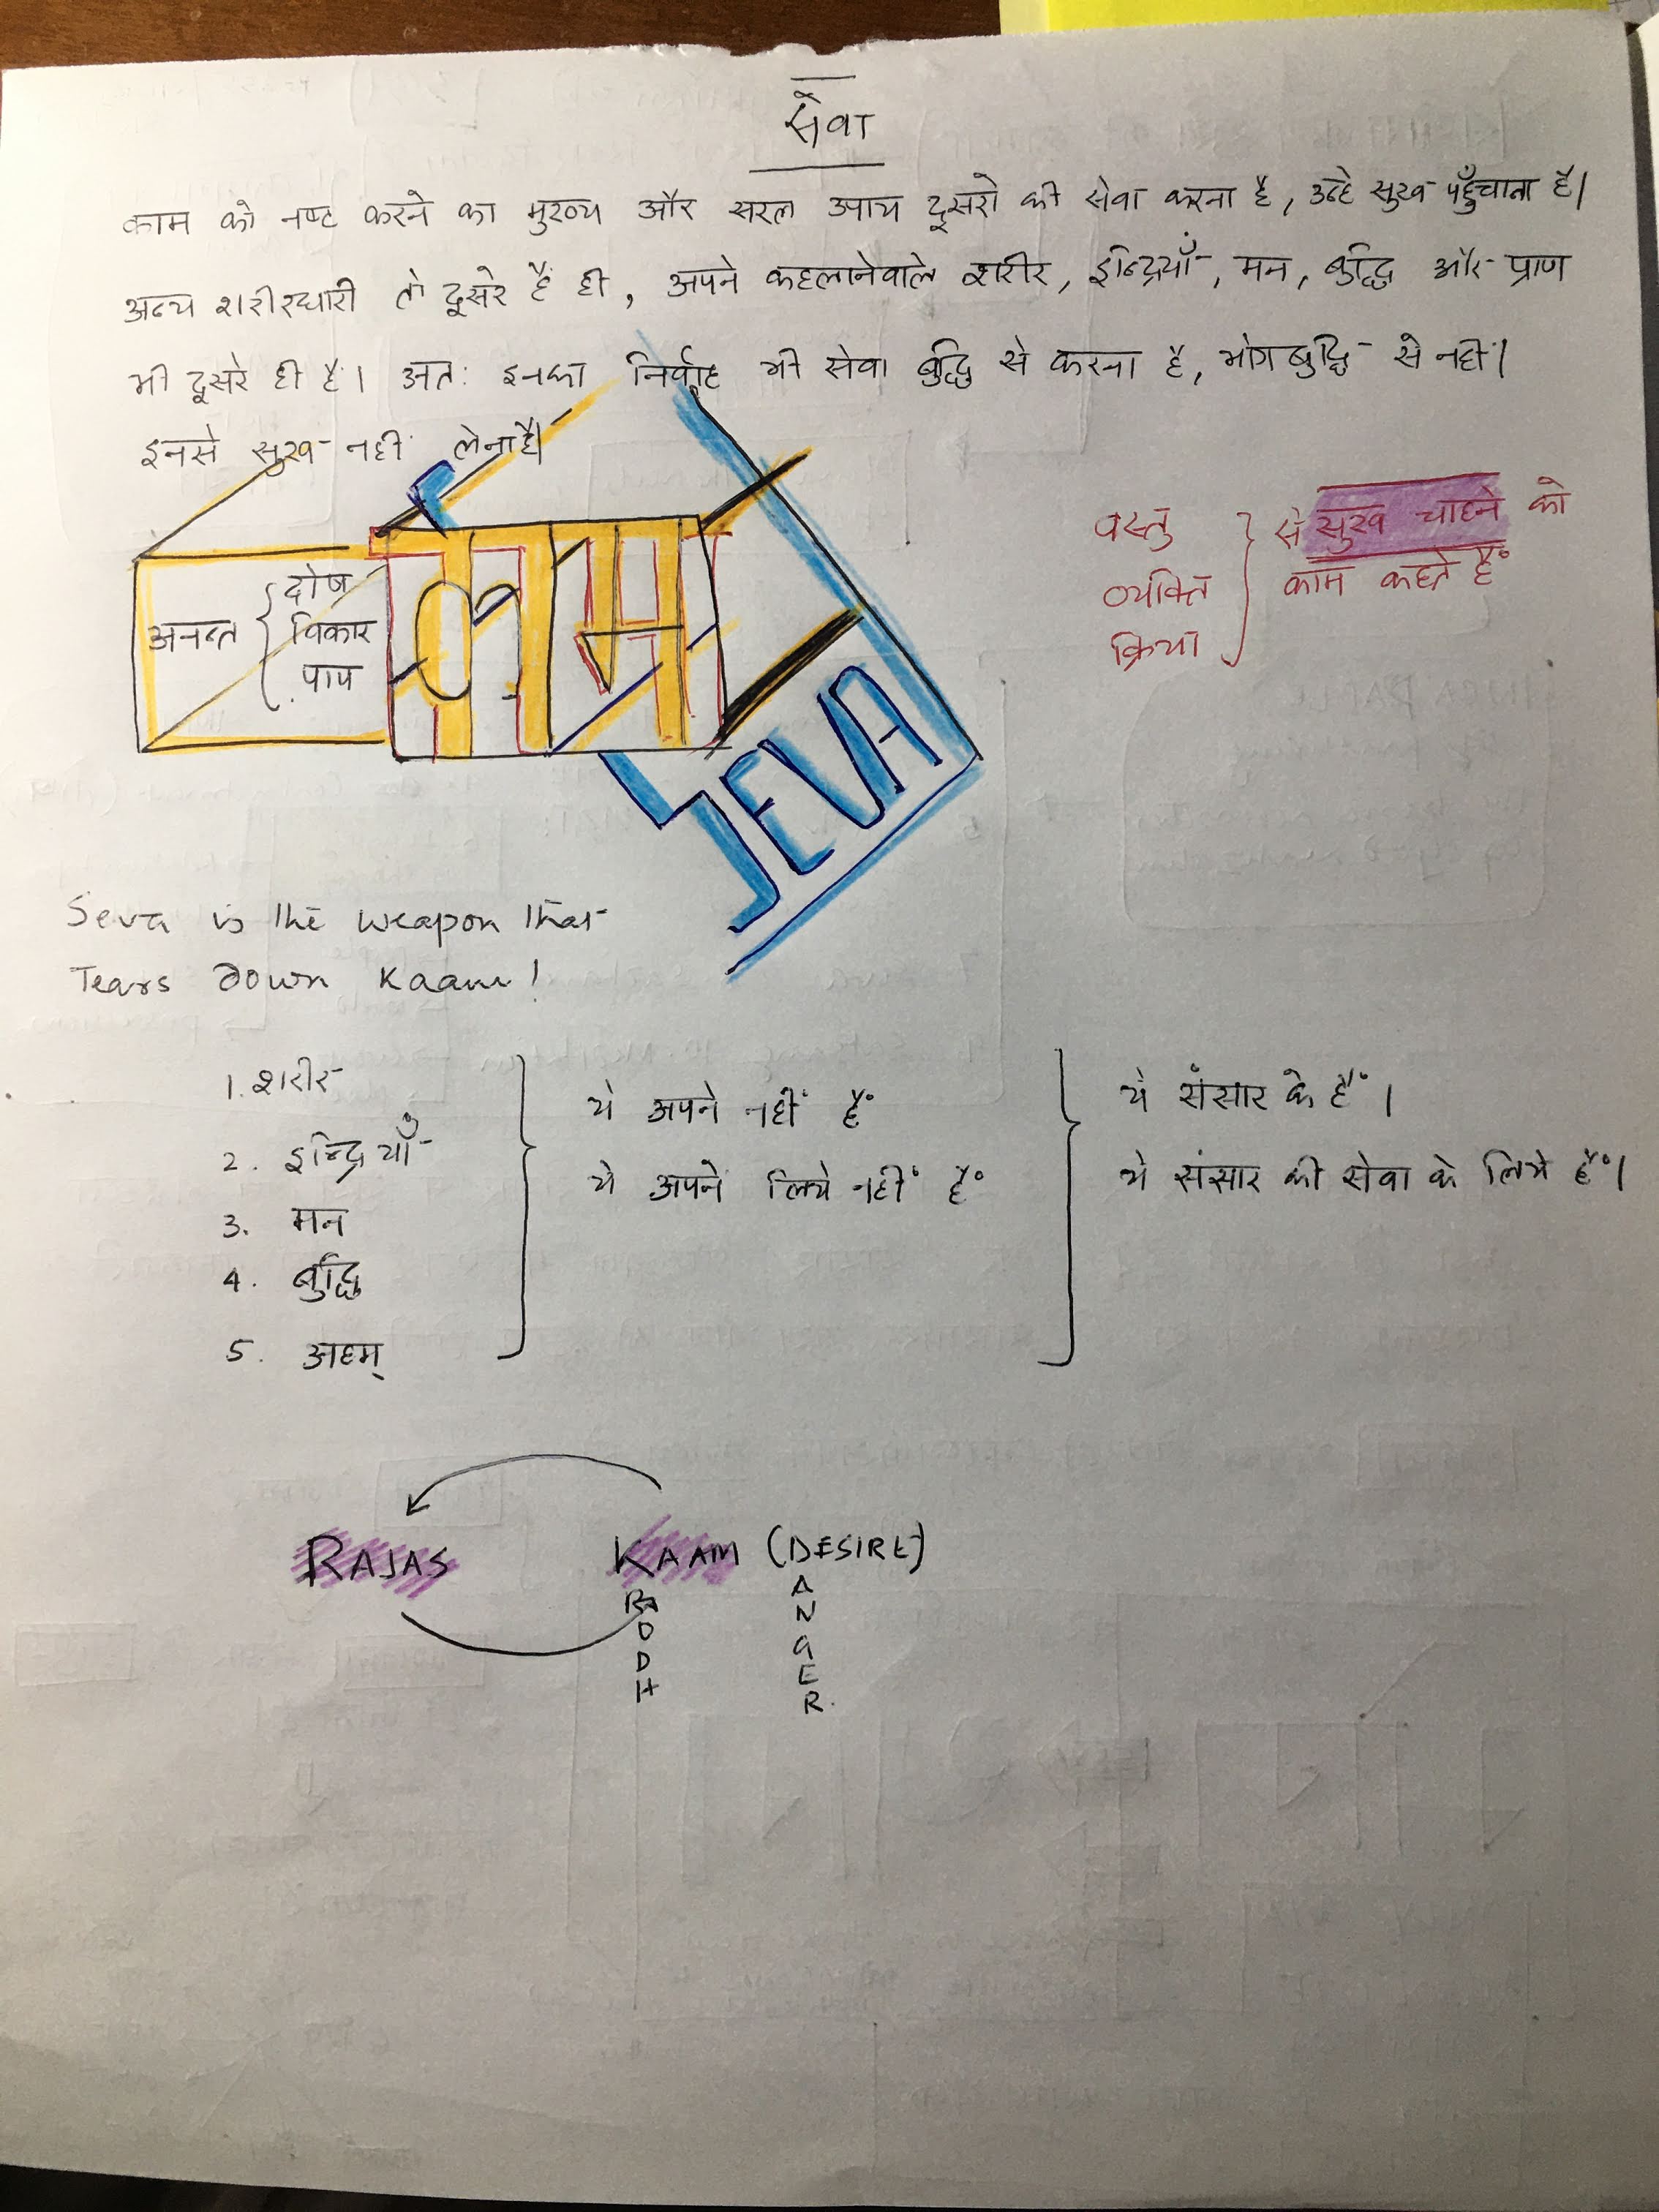 सेवा
काम को नष्ट करने का मुख्य और सरल उपाय दूसरो की सेवा करना है, उन्हे सुख पहुँचाना है।
अन्य शरीरधारी तो दूसरे हैं ही, अपने कहलानेवाले शरीर, इन्द्रियाँ, मन, बुद्धि और प्राण
भी दूसरे ही है। अतः इनका निर्वाह भी सेवा बुद्धि से करना है, भोगबुद्धि से नहीं।
इनसे सुख नहीं लेना है।
वस्तु
व्यक्ति
क्रिया
से सुख चाहने को
काम कहते हैं
अनन्त
दोष
विकार
पाप
काम
SEVA
Seva is the weapon that
Tears down Kaam!
1. शरीर
2. इन्द्रियाँ
3. मन
4. बुद्धि
5. अहम्
ये अपने नहीं हैं
ये अपने लिये नहीं हैं
ये संसार के हैं।
ये संसार की सेवा के लिये हैं।
RAJAS
KAAM (DESIRE)
RODH
ANGER